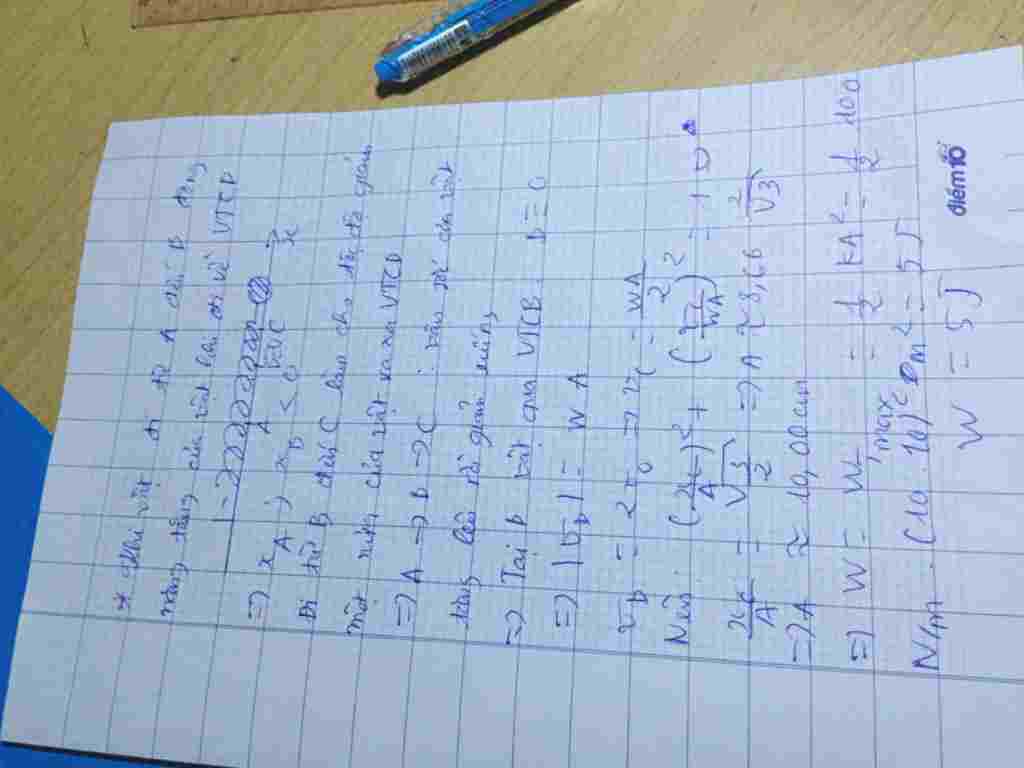 * Khi vật đi từ A đến B động
năng tăng của vật lại đi về VTCB
A B C x
=> x_A, x_B < 0
Đi từ B đến C làm cho độ giãn
một của vật ra xa VTCB
=> A -> B -> C: vận tốc của vật
tăng lên rồi giảm xuống
=> Tại B vật qua VTCB. B = 0
=> |v_B| = WA
v_B = 2v_C => v_C = WA/2
Nên: (x_C/A)² + (v_C/WA)² = 1
x_C/A = √3/2 => A ≈ 8,66 2/√3
=> A ≈ 10,00cm
=> W = W_tmax = 1/2 KA² = 1/2 100
N/m . (10 . 10)² m² = 5J
W = 5J
điểm 10